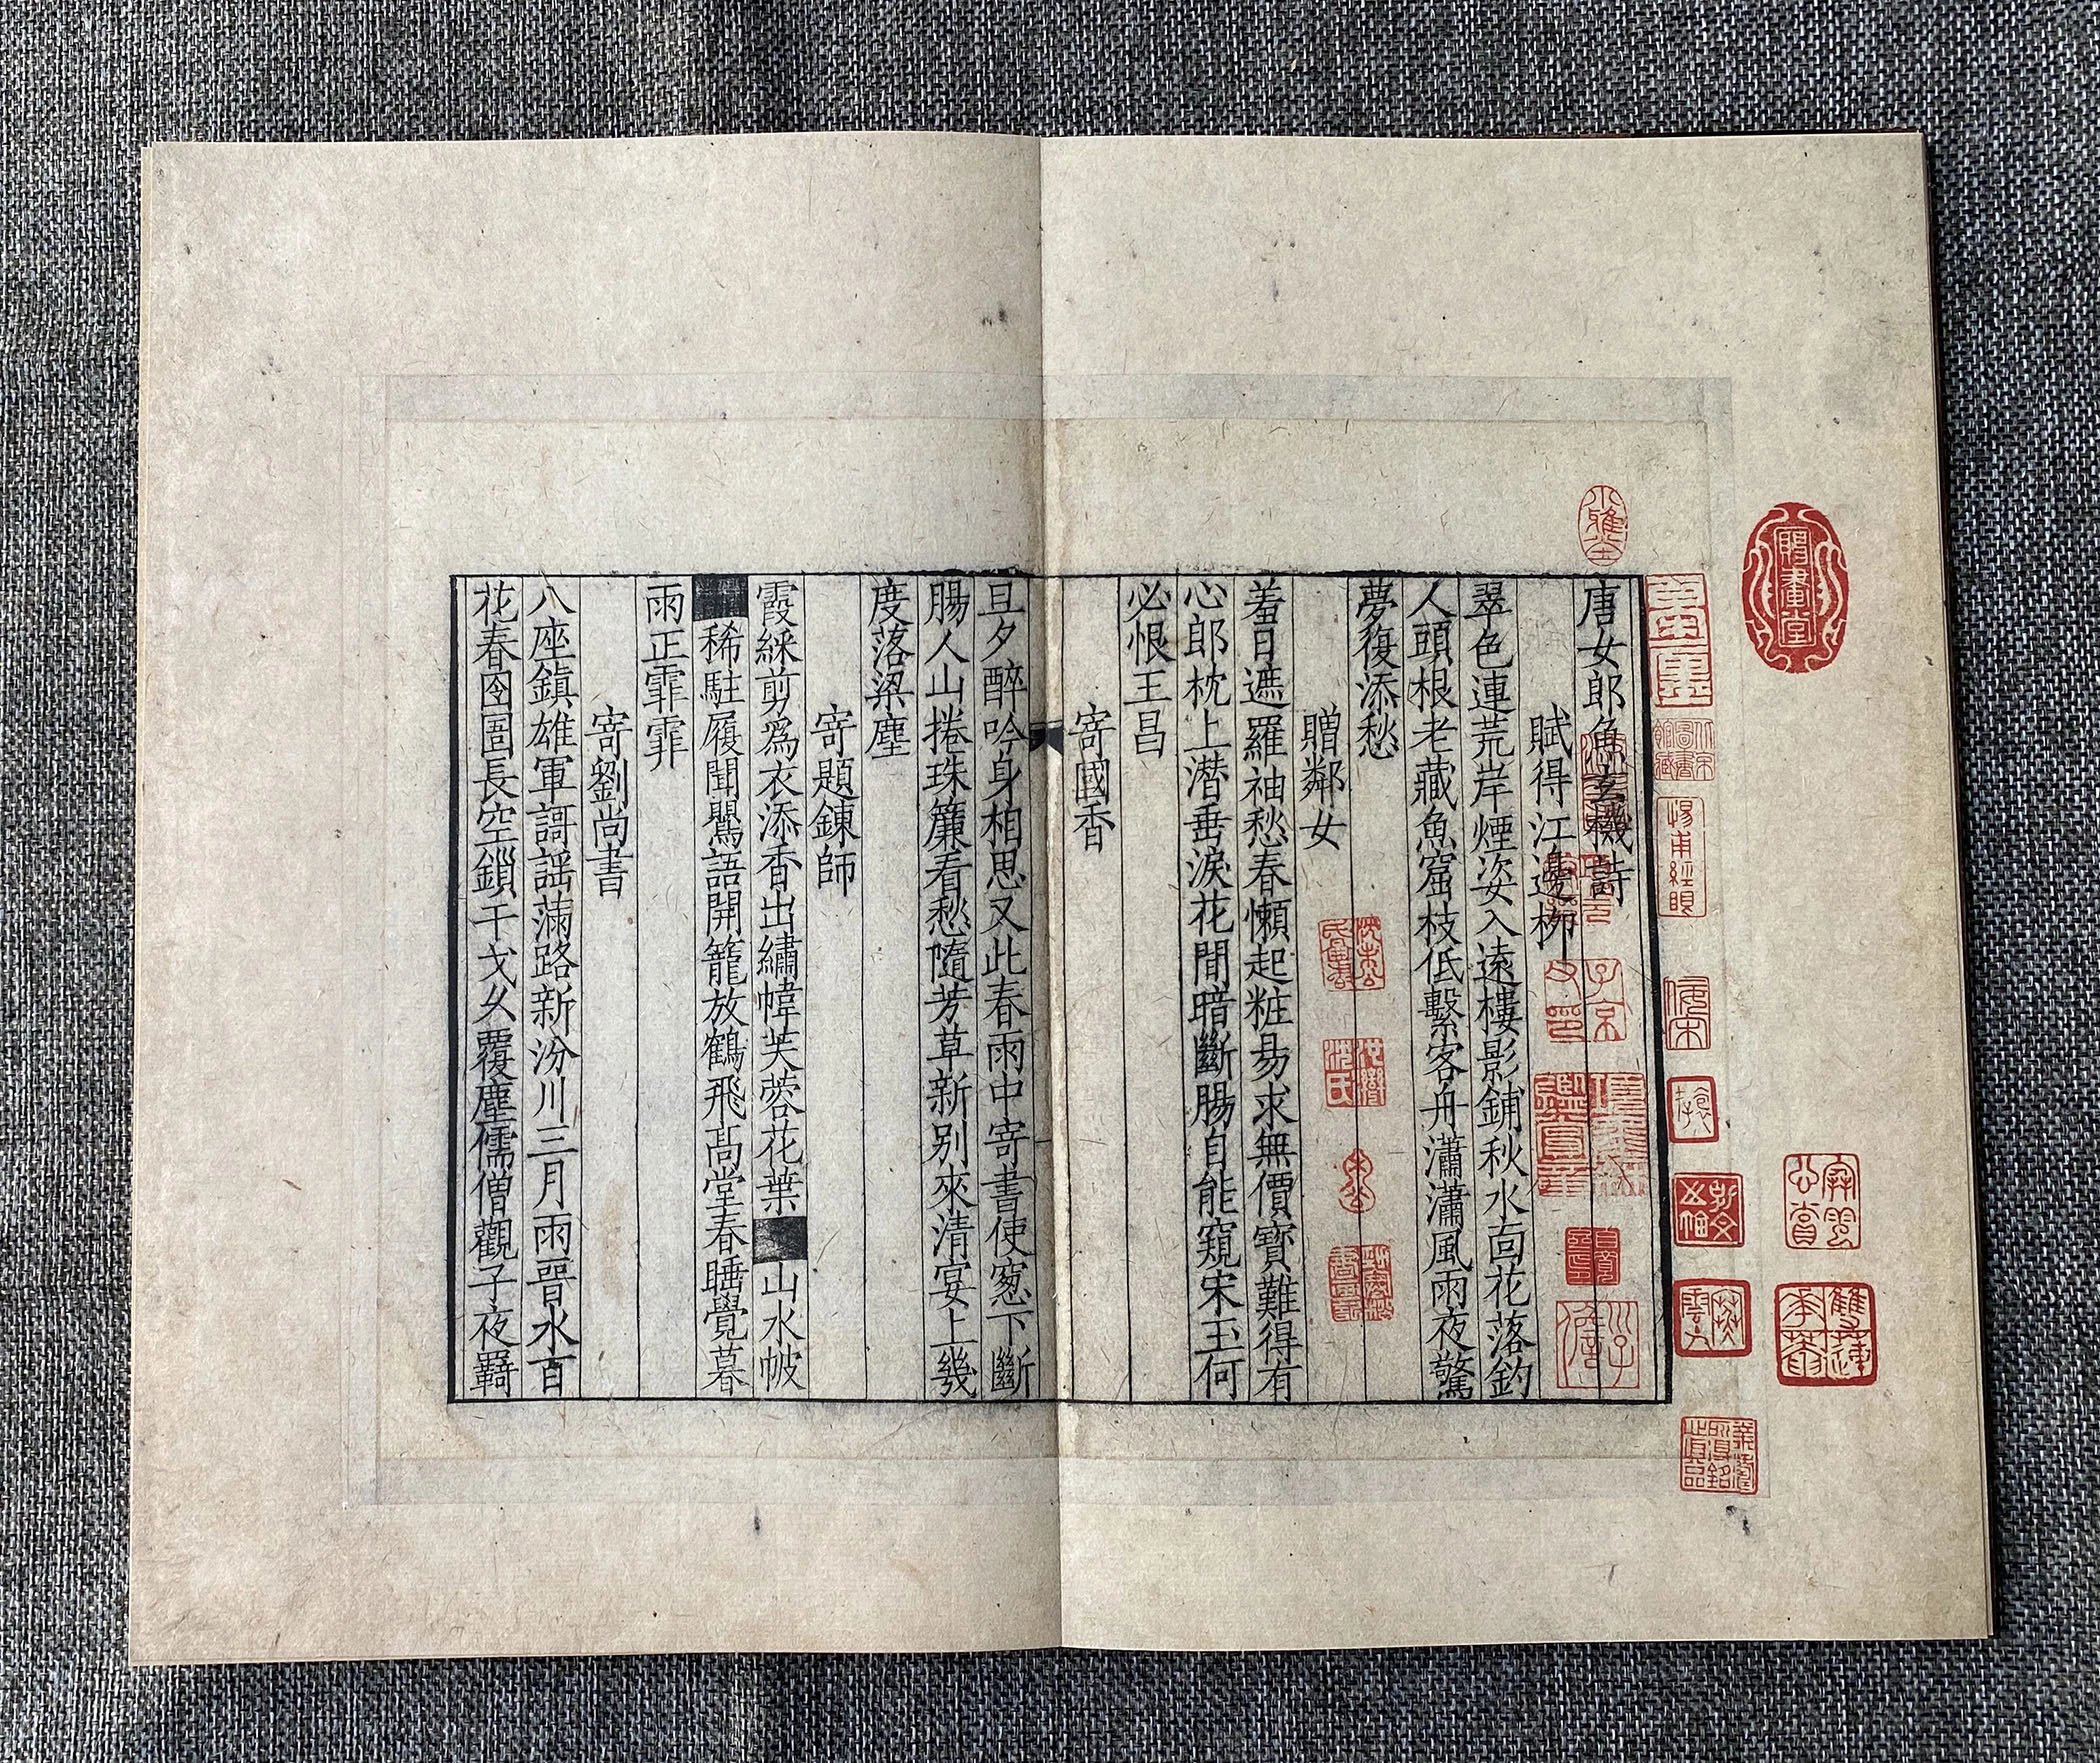 唐女郎魚玄機詩
賦得江邊柳
翠色連荒岸煙姿入遠樓影鋪秋水面花落釣
人頭根老藏魚窟枝低繫客舟瀟瀟風雨夜驚
夢復添愁
贈鄰女
羞日遮羅袖愁春懶起粧易求無價寳難得有
心郎枕上潜垂淚花間暗斷腸自能窺宋玉何
必恨王昌
寄國香
旦夕醉吟身相思又此春雨中寄書使窓下斷
腸人山捲珠簾看愁隨芳草新别來清宴上幾
度落梁塵
寄題鍊師
霞綵剪為衣添香出繡幃芙蓉花葉■山水帔
■稀駐履聞鸎語開籠放鶴飛髙堂春睡覺暮
雨正霏霏
寄劉尚書
八座鎮雄軍謌謡滿路新汾川三月雨晉水百
花春囹圄長空鎻干戈乆覆塵儒僧觀子夜羇
子京
沈氏